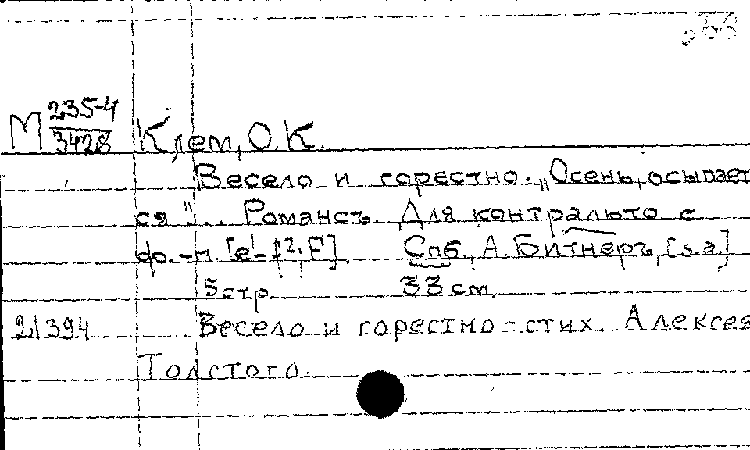 М 235-4/3428 Клем, О.К.
Весело и горестно. „Осень, осыпает
ся"... Романсъ. Для контральто с
ф.-п. [e¹-f², F]. Спб., А. Битнеръ, [s.a.]
5 стр. 33 см.
21394 Весело и горестно - стих. Алексея
Толстого.